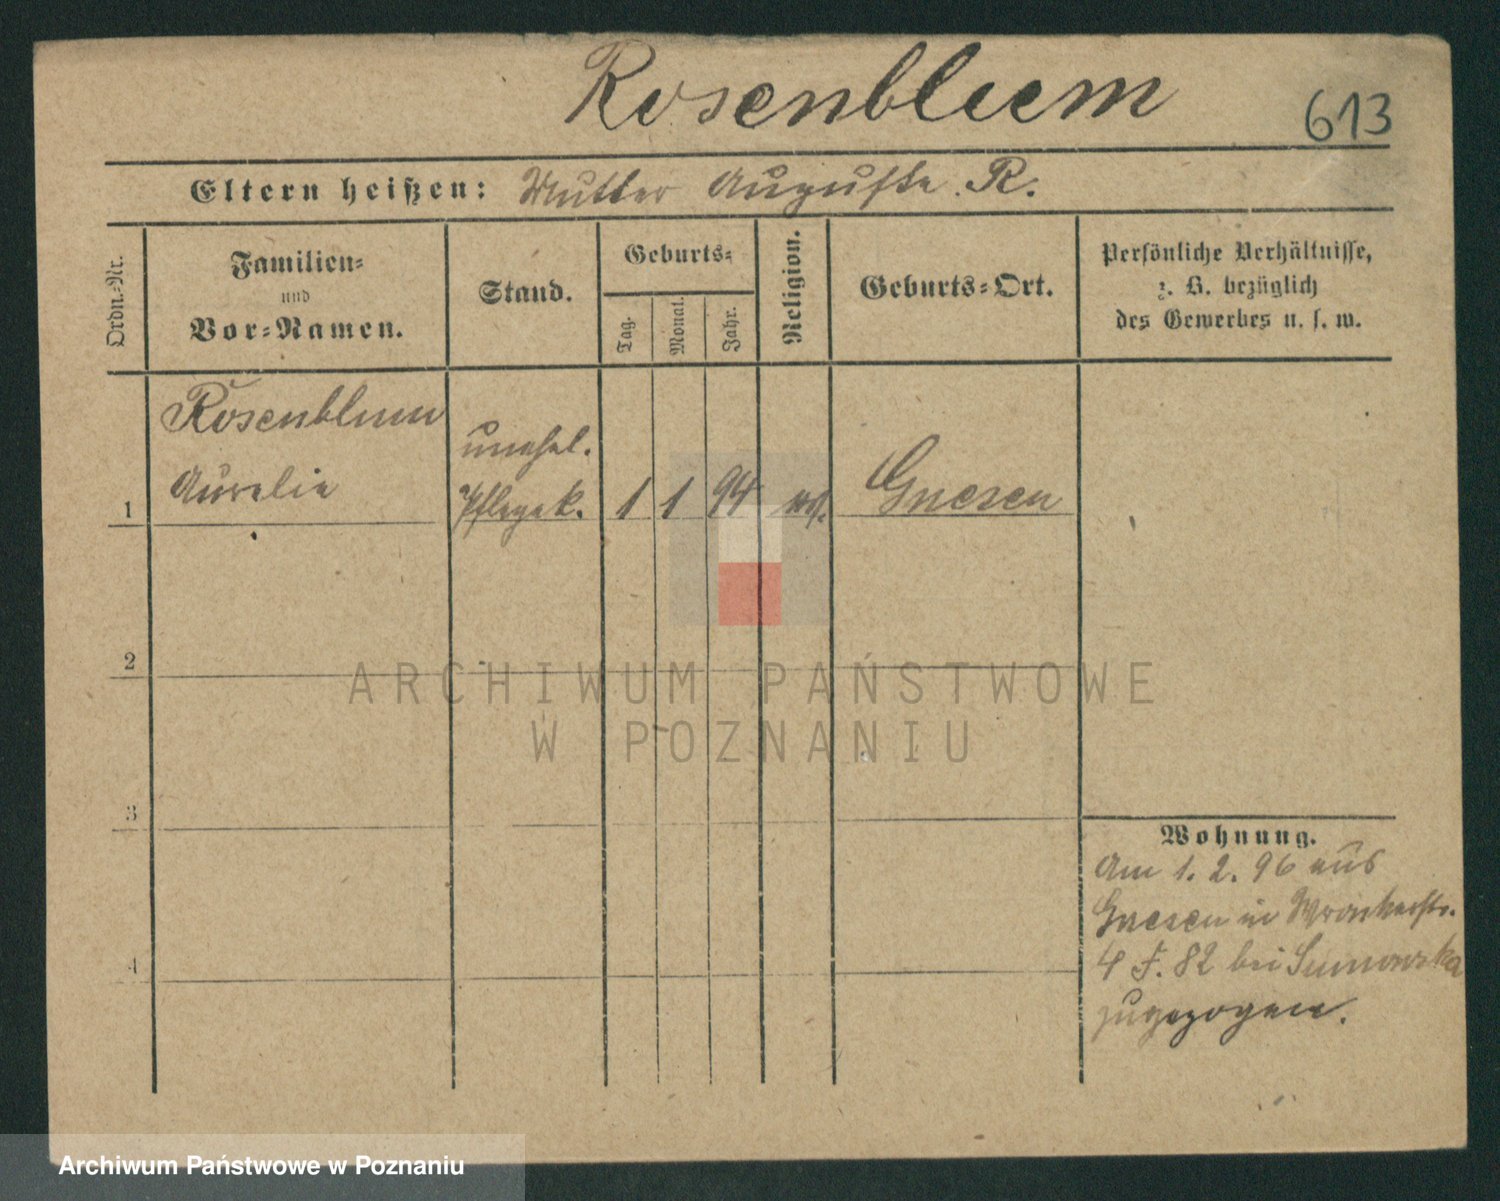 Rosenblum
613
Eltern heißen: Mutter Auguste R.
Ordn.-Nr.
Familien-
und
Vor-Namen.
Stand.
Geburts-
Tag.
Monat.
Jahr.
Religion.
Geburts-Ort.
Persönliche Verhältnisse,
z. B. bezüglich
des Gewerbes u. s. w.
Rosenblum
unehel.
1 Aurelie Pflegek. 1 1 94 Gnesen
2
3
4
Wohnung.
Am 1. 2. 96 aus
Gnesen in Wronkerstr.
4 F. 82 bei Sumowska
zugezogen.
ARCHIWUM PAŃSTWOWE
W POZNANIU
Archiwum Państwowe w Poznaniu